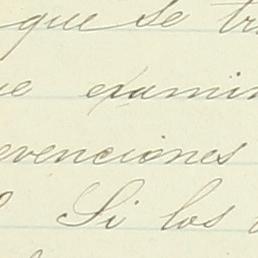 que se tr
e examin
evenciones
Si los